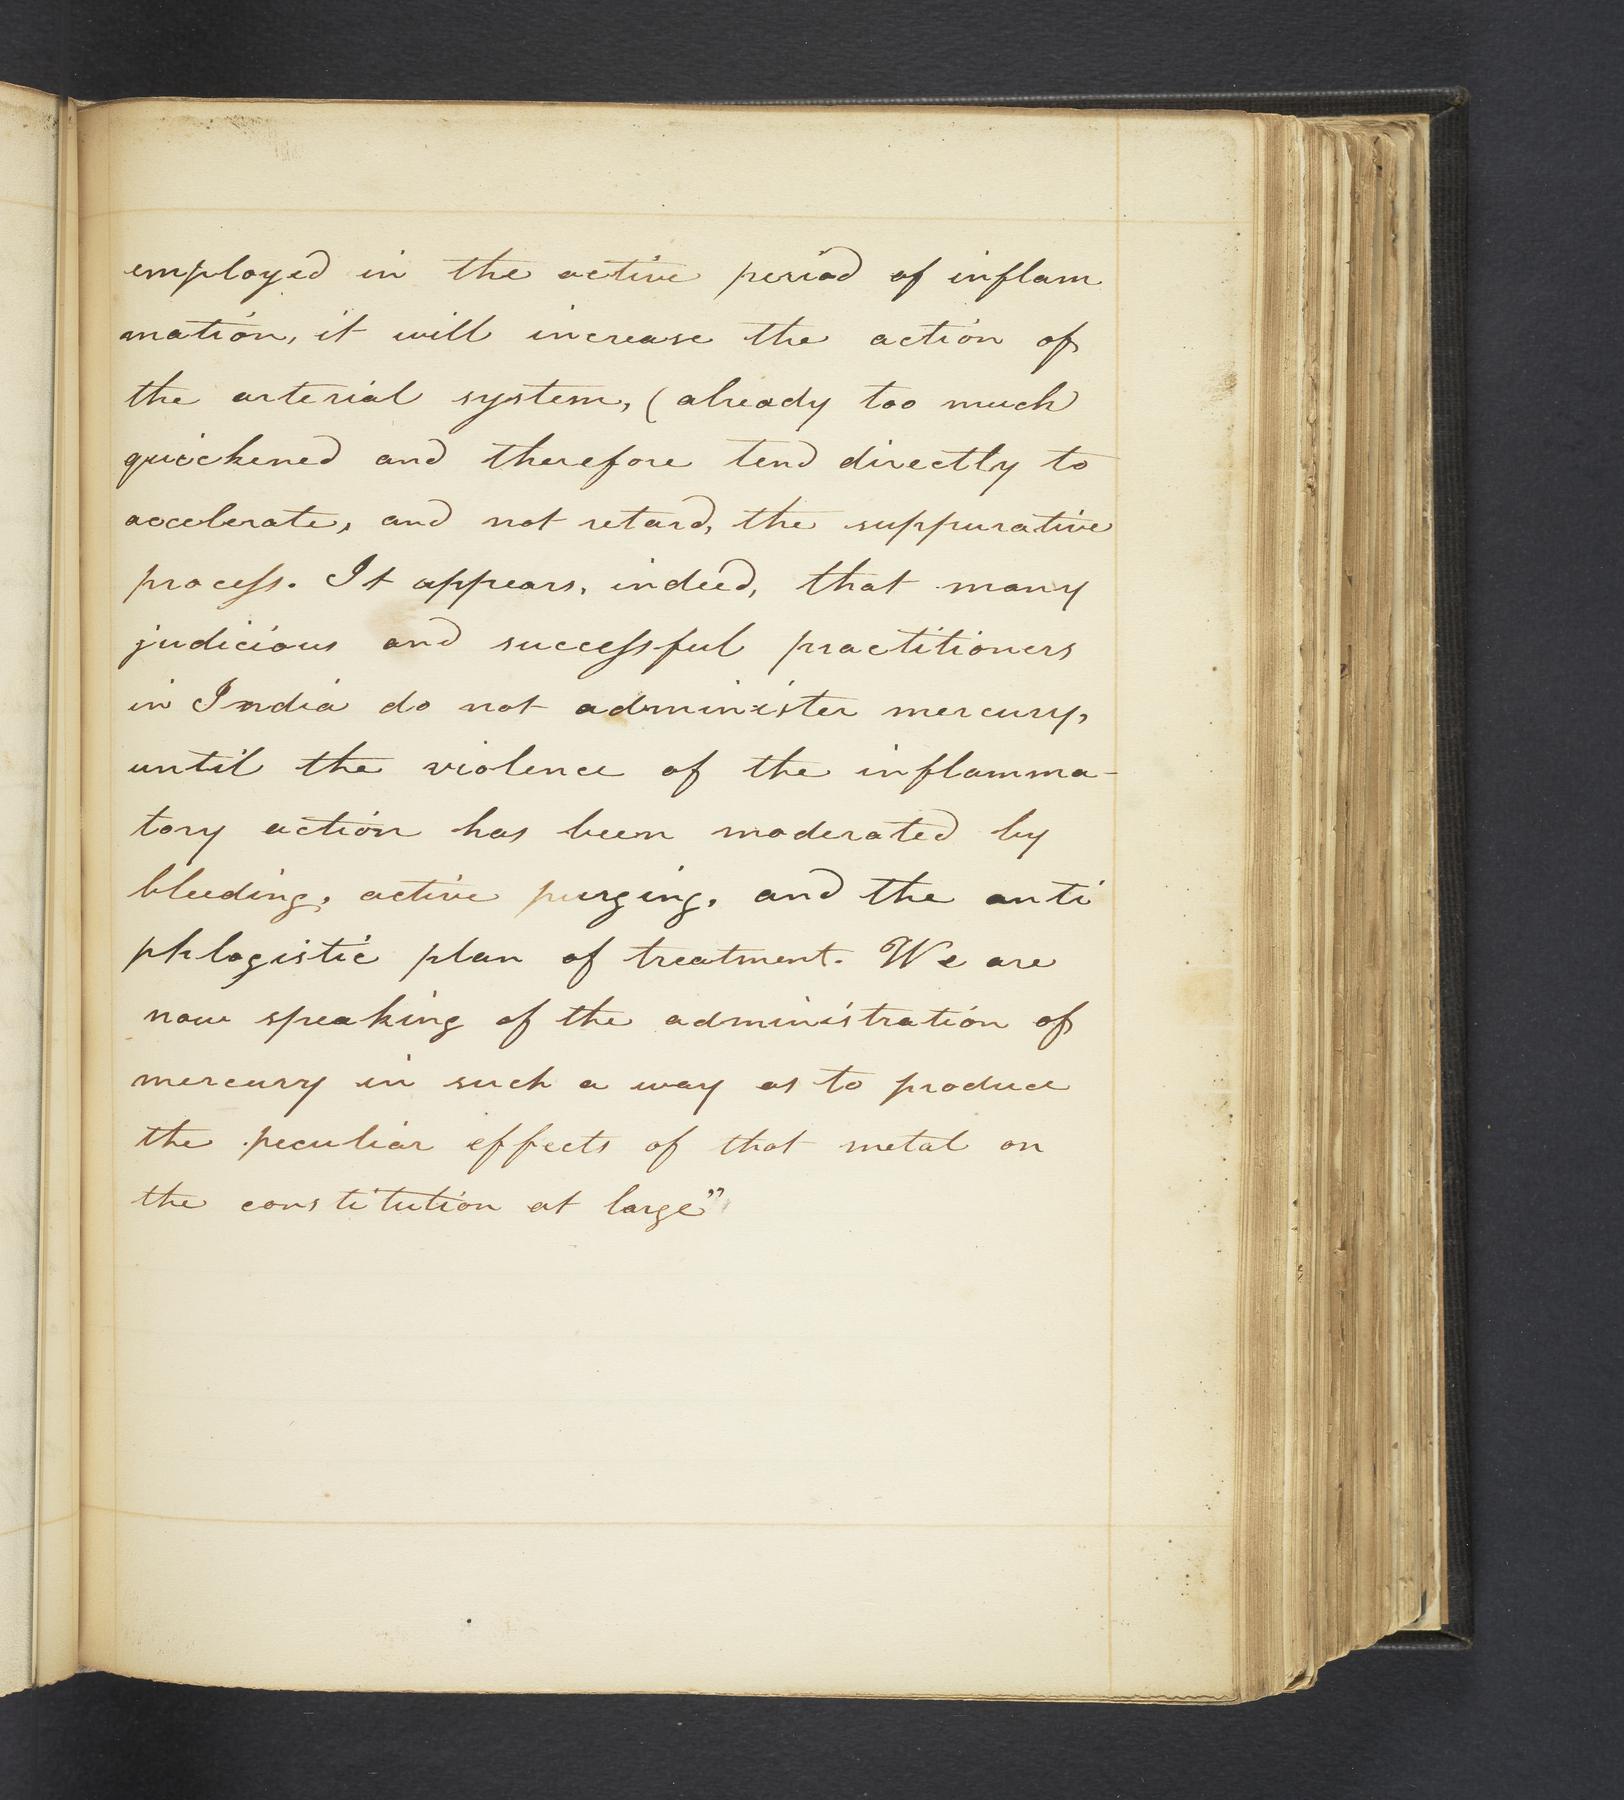 employed in the active period of inflam
mation, it will increase the action of
the arterial system, (already too much
quickened and therefore tend directly to
accelerate, and not retard, the suppurative
process. It appears, indeed, that many
judicious and successful practitioners
in India do not administer mercury,
until the violence of the inflamma-
tory action has been moderated by
bleeding, active purging, and the anti
phlogistic plan of treatment. We are
now speaking of the administration of
mercury in such a way as to produce
the peculiar effects of that metal on
the constitution at large"